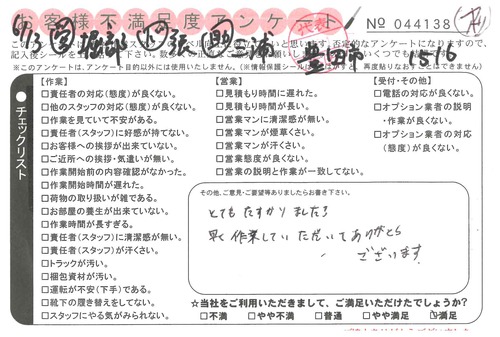 お客様不満足度アンケート
No 044138
6/13 堀部 張 浦 豊田市 1516
※このアンケートは、アンケート目的以外には使用いたしません。（※情報保護シールは
チェックリスト
【作業】
□責任者の対応(態度)が良くない。
□他のスタッフの対応(態度)が良くない。
□作業を見ていて不安がある。
□責任者(スタッフ)に好感が持てない。
□お客様への挨拶が出来ていない。
□ご近所への挨拶・気遣いが無い。
□作業開始前の内容確認がなかった。
□作業開始時間が遅れた。
□荷物の取り扱いが雑である。
□お部屋の養生が出来ていない。
□作業時間が長すぎる。
□責任者(スタッフ)に清潔感が無い。
□責任者(スタッフ)が汗くさい。
□トラックが汚い。
□梱包資材が汚い。
□運転が不安(下手)である。
□靴下の履き替えをしてない。
□スタッフにやる気がみられない。
【営業】
□見積もり時間に遅れた。
□見積もり時間が長い。
□営業マンに清潔感が無い。
□営業マンが煙草くさい。
□営業マンが汗くさい。
□営業態度が良くない。
□営業の説明と作業が一致してない。
【受付・その他】
□電話の対応が良くない。
□オプション業者の説明
・作業が良くない。
□オプション業者の対応
(態度)が良くない。
その他、ご意見・ご要望等ありましたらお書き下さい。
とてもたすかりました！
早く作業していただいてありがとう
ございます。
☆当社をご利用いただきまして、ご満足いただけたでしょうか?
□不満 □やや不満 □普通 □やや満足 ☑満足